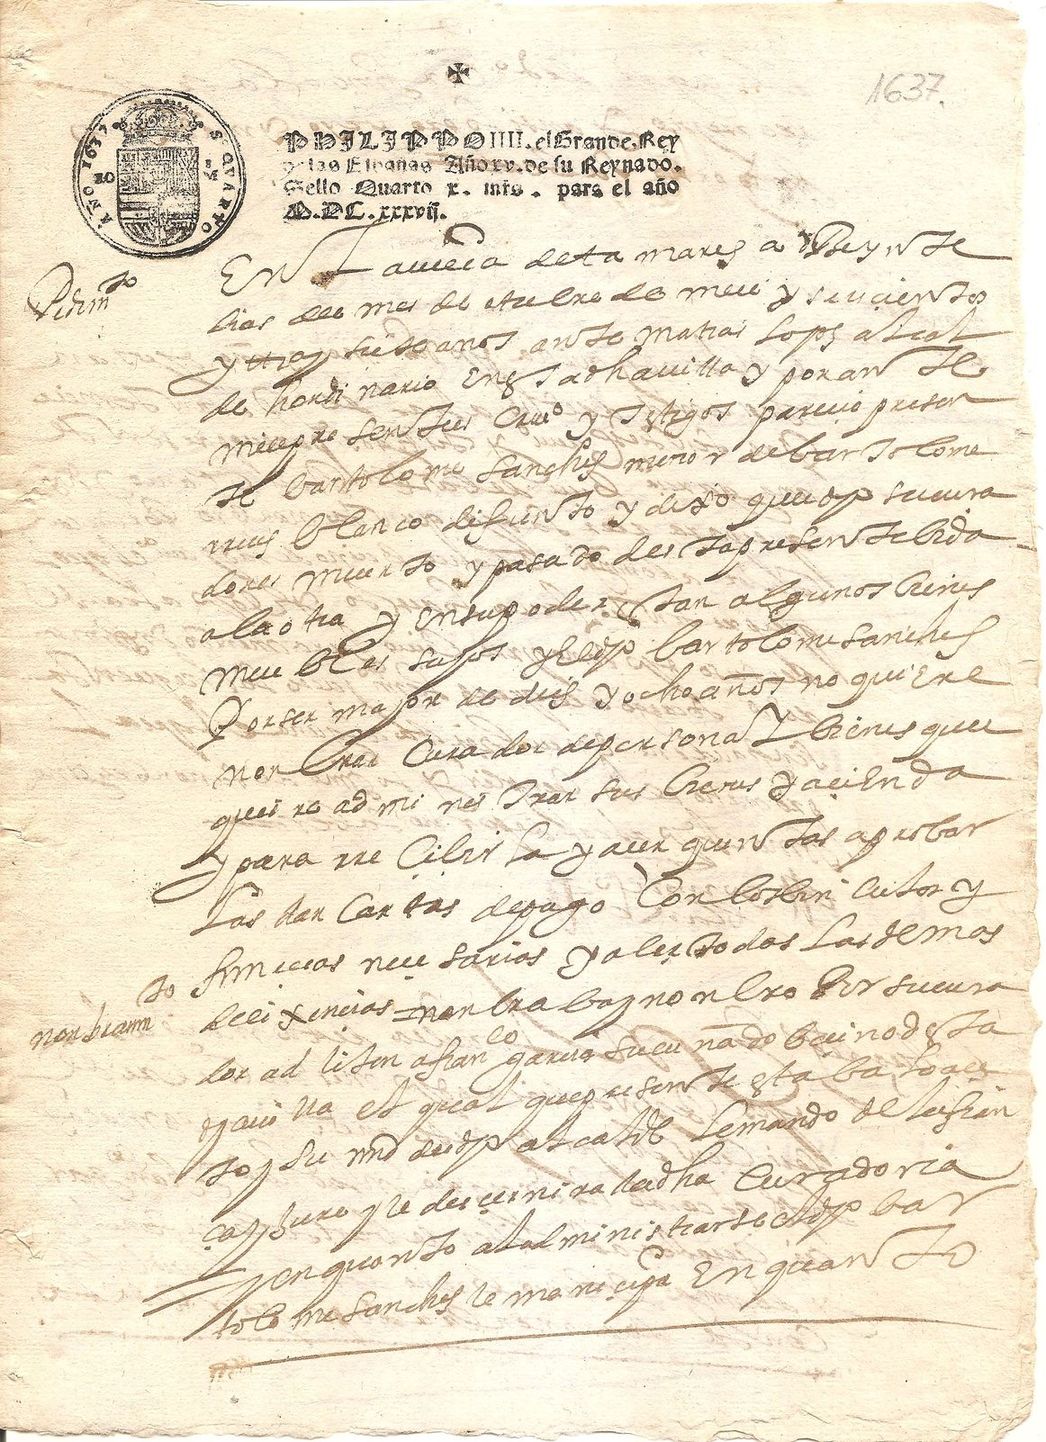 1637.
PHILIPPO IIII. el Grande. Rey
de las Españas Año xv. de su Reynado.
Sello Quarto x. mrs. para el año
M.DC.xxxvij.
AÑO 1637 S. QVARTO
Pedim to
En la deta mares a Veynte
dias del mes de otubre de mill y seiscientos
y trey siete anos ante matias lopz alcal
de hordinario en estadha villa y por ante
mi el presente es cru o y testigos parecio presen
te bartolome sanches menor de bartolome
blanco difunto y dixo que sucura
dor es muerto y pasado desta presente bida
a la otra y en su poder estan algunos bienes
muebles suyos y el dho bartolome sanches
por ser major de dies y ocho años no quiere
nonbrar curador de persona y bienes que
quiere administrar sus bienes y acienda
y para rre cibir la y acer quentas aprobar
las dar cartas de pago con los binculos y
firmecas necesarias y acer todas las demas
to
nonbram
delixencias nonbraba y nonbro por su cura
dor ad liten a garcia su cuñado becino desta
villa el qual que presente estaba lo acep
to y su md del dho alcalde le mando
y le dicernira la dha curadoria
y en quanto al administrarse el dho bar
tolome sanches le en quanto